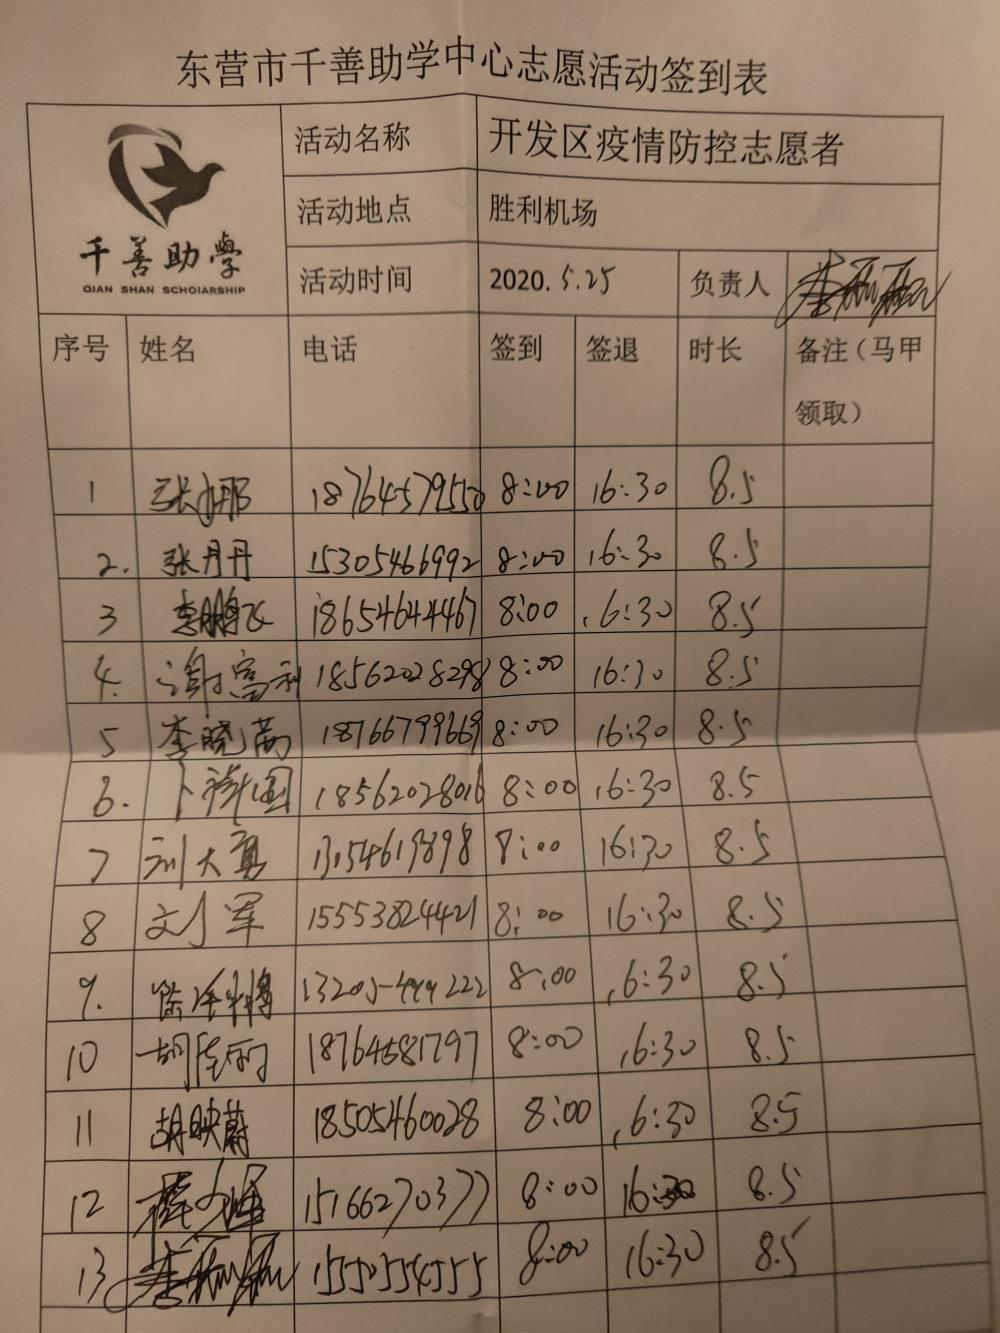 东营市千善助学中心志愿活动签到表
千善助學
QIAN SHAN SCHOIARSHIP
活动名称 开发区疫情防控志愿者
活动地点 胜利机场
活动时间 2020.5.25 负责人
序号 姓名 电话 签到 签退 时长 备注（马甲
领取）
1 张娜 18764579550 8:00 16:30 8.5
2. 张丹丹 15305466992 8:00 16:30 8.5
3 李鹏飞 18654644467 8:00 16:30 8.5
4. 谢富利 18562028298 8:00 16:30 8.5
5 李晓菡 18766799669 8:00 16:30 8.5
6. 卜祥国 18562028016 8:00 16:30 8.5
7 刘大勇 13154619898 8:00 16:30 8.5
8 刘军 15553824421 8:00 16:30 8.5
9. 8:00 16:30 8.5
10 18764581797 8:00 16:30 8.5
11 胡映蔚 18505460028 8:00 16:30 8.5
12 15166270377 8:00 16:30 8.5
13 15550554555 8:00 16:30 8.5